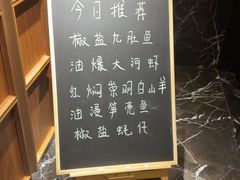 今日推荐
椒盐九肚鱼
油爆大河虾
红焖崇明白山羊
油浸笋壳鱼
椒盐蚝仔